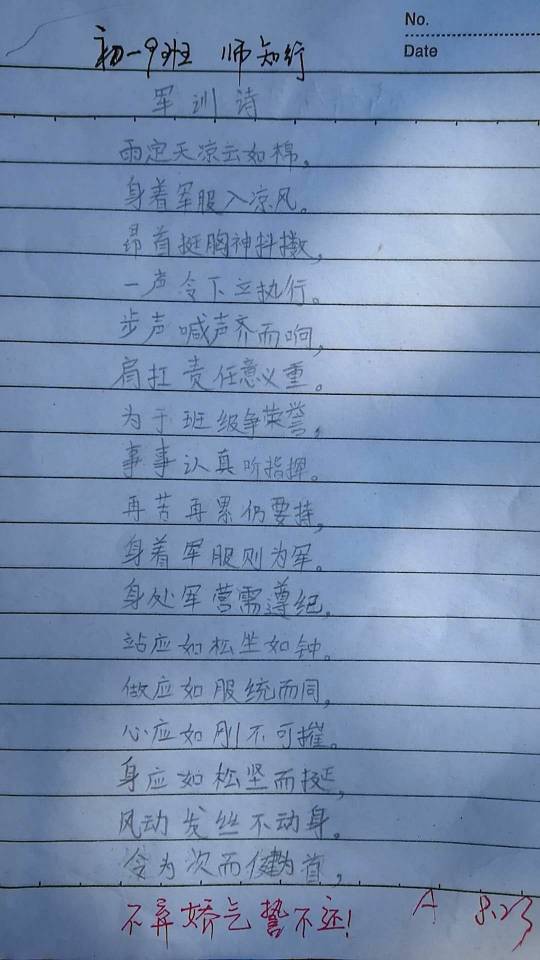 No.
Date
初一9班 师知行
军训诗
雨定天凉云如棉,
身着军服入凉风。
昂首挺胸神抖擞,
一声令下立执行。
步声喊声齐而响,
肩扛责任意义重。
为于班级争荣誉,
事事认真听指挥。
再苦再累仍要持,
身着军服则为军。
身处军营需遵纪,
站应如松坐如钟。
做应如服统而同,
心应如刚不可摧。
身应如松坚而挺,
风动发丝不动身。
令为次而健为首,
不弃娇气誓不还!
A 8.23